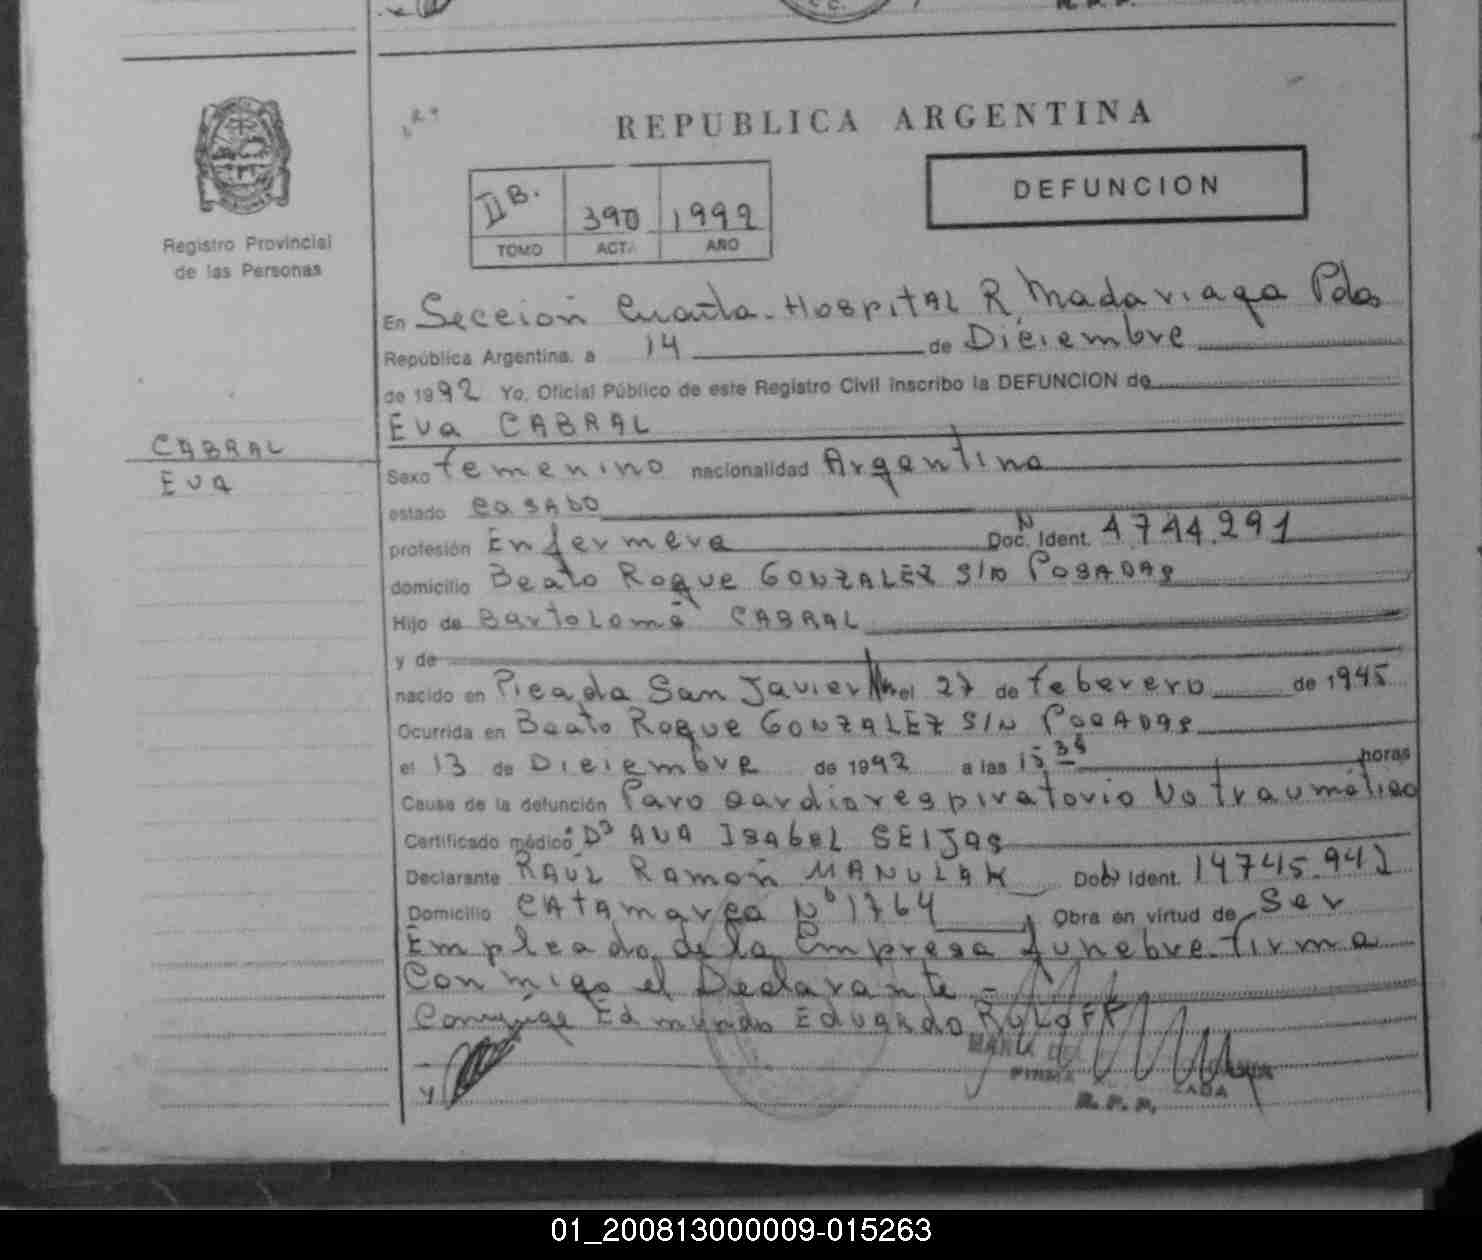 REPUBLICA ARGENTINA
DEFUNCION
II B. 390 1992
TOMO ACTA AÑO
Registro Provincial
de las Personas
En Sección Cuarta. Hospital R. Madariaga Pdas
República Argentina, a 14 de Diciembre
de 1992 Yo, Oficial Público de este Registro Civil inscribo la DEFUNCION de
Eva CABRAL
CABRAL
Eva
Sexo femenino nacionalidad Argentina
estado casado
profesión Enfermera Doc. N Ident. 4.744.291
domicilio Beato Roque GONZALEZ S/N POSADAS
Hijo de Bartolomé CABRAL
y de
nacido en Picada San Javier Mnes el 27 de feberero de 1945
Ocurrida en Beato Roque GONZALEZ S/N POSADAS
el 13 de Diciembre de 1992 a las 15 horas
Causa de la defunción Paro cardiorespiratorio No traumático
Certificado médico Dª ANA ISABEL SEIJAS
Declarante RAÚL Ramón MANULAK Doc Ident. 14745.942
Domicilio CATAmarca Nº 1764 Obra en virtud de Ser
Empleado de la Empresa funebre. firma
Conmigo el Declarante -
Conyuge Edmundo Eduardo ROLOFF
R.P.P.
01_200813000009-015263